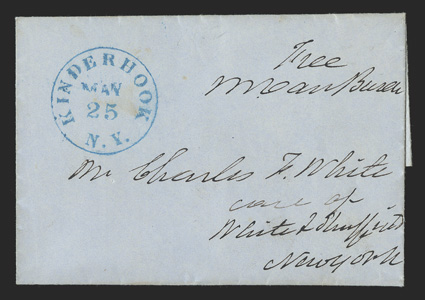 KINDERHOOK
MAY
25
N.Y.
Free
M Van Buren
Mr Charles F. White
care of
White & Sheffield
New York